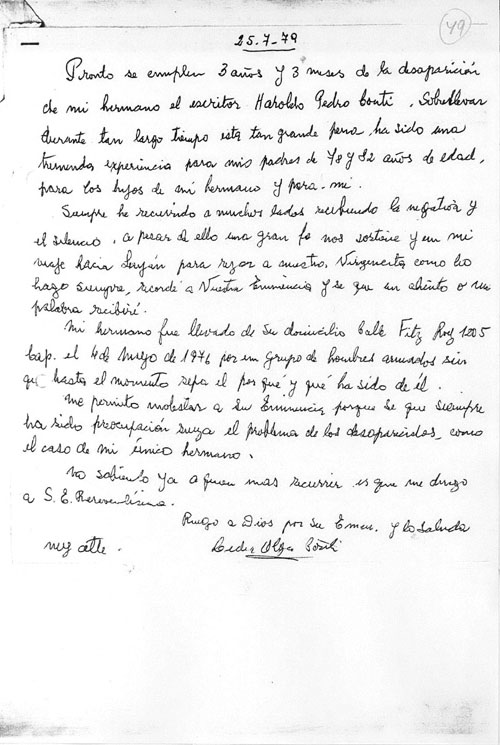 49
25.7.79
Pronto se cumplen 3 años y 3 meses de la desaparición
de mi hermano el escritor Haroldo Pedro Conti. Sobrellevar
durante tan largo tiempo esta tan grande pena, ha sido una
tremenda experiencia para mis padres de 78 y 82 años de edad,
para los hijos de mi hermano y para mí.
Siempre he recurrido a muchos lados recibiendo la negativa y
el silencio, a pesar de ello una gran fe nos sostiene y en mi
viaje hacia Luján para rezar a nuestra Virgencita como lo
hago siempre, recordé a Vuestra Eminencia y se que un aliento o una
palabra recibiré.
Mi hermano fue llevado de su domicilio Calle Fitz Roy 1205
cap. el 4 de Mayo de 1976 por un grupo de hombres armados sin
que hasta el momento sepa el por qué y qué ha sido de él.
Me permito molestar a Su Eminencia porque se que siempre
ha sido preocupación suya el problema de los desaparecidos, como
el caso de mi único hermano.
No sabiendo ya a quien mas recurrir es que me dirijo
a S. E. Reverendísima.
Ruego a Dios por su Emcia. y lo saluda
muy atte.
Olga Conti